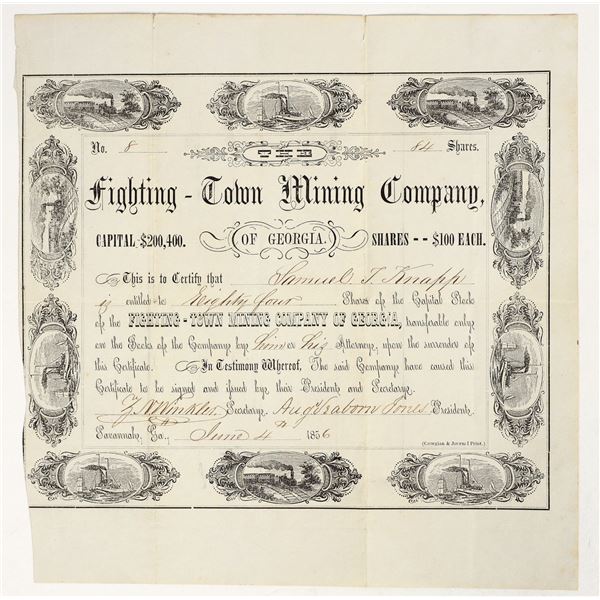 No. 8 84 Shares.
THE
Fighting - Town Mining Company,
CAPITAL $200,400. OF GEORGIA. SHARES - - $100 EACH.
This is to Certify that Samuel T. Knapp
is entitled to Eighty four Shares of the Capital Stock
of the FIGHTING - TOWN MINING COMPANY OF GEORGIA, transferable only
on the Books of the Company by him or his Attorney, upon the surrender of
this Certificate. In Testimony Whereof, The said Company have caused this
Certificate to be signed and issued by their President and Secretary.
Winkler Secretary. Aug Seaborn Jones President.
Savannah, Ga., June 4th 1856
(Georgian & Journal Print.)